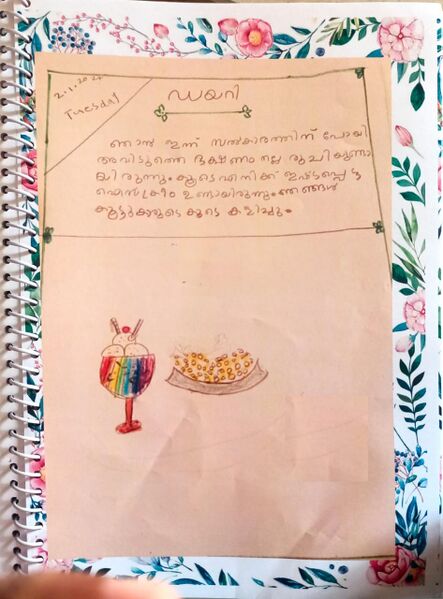 2.1.2024
Tuesday
ഡയറി
ഞാൻ ഇന്ന് സൽകാരത്തിന് പോയി
അവിടുത്തെ ഭക്ഷണം നല്ല രുചിയുണ്ടാ
യിരുന്നു. കൂടെ എനിക്ക് ഇഷ്ടപ്പെട്ട
ഐസ്ക്രീം ഉണ്ടായിരുന്നു. ഞങ്ങൾ
കൂട്ടുകാരുടെ കൂടെ കളിച്ചു.